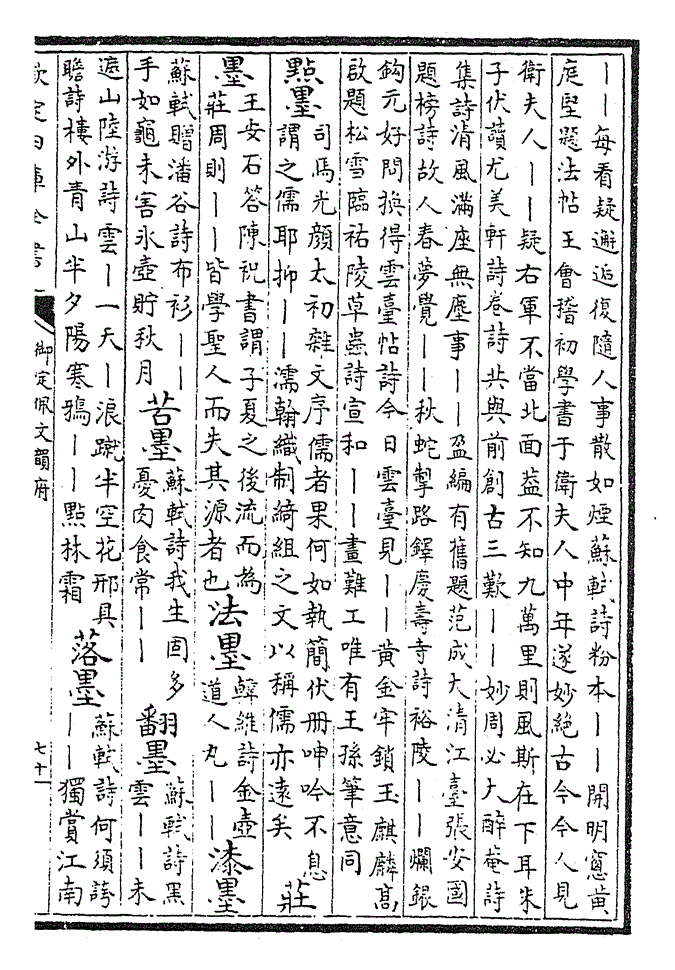 丨丨每看疑邂逅復隨人事散如煙蘇軾詩粉本丨丨開明窻黃
庭堅題法帖王會稽初學書于衛夫人中年遂妙絶古今今人見
衛夫人丨丨疑右軍不當北面葢不知九萬里則風斯在下耳朱
子伏讀尤美軒詩卷詩共與前創古三歎丨丨妙周必大醉菴詩
集詩清風滿座無塵事丨丨盈編有舊題范成大清江臺張安國
題榜詩故人春夢覺丨丨秋蛇掣路鐸慶壽寺詩裕陵丨丨爛銀
鈎元好問換得雲臺帖詩今日雲臺見丨丨黃金牢鎖玉麒麟髙
啟題松雪臨祐陵草蟲詩宣和丨丨畫難工唯有王孫筆意同
點墨
司馬光顔太初雜文序儒者果何如執簡伏册呻吟不息
謂之儒耶抑丨丨濡翰織制綺組之文以稱儒亦遠矣
莊
墨
王安石答陳柅書謂子夏之後流而為
莊周則丨丨皆學聖人而失其源者也
法墨
韓維詩金壺
道人丸丨丨
漆墨
蘇軾贈潘谷詩布衫丨丨
手如龜未害氷壺貯秋月
苦墨
蘇軾詩我生固多
憂肉食常丨丨
翻墨
蘇軾詩黑
雲丨丨未
遮山陸游詩雲丨一天丨浪蹴半空花邢具
瞻詩樓外青山半夕陽寒鴉丨丨點林霜
落墨
蘇軾詩何須誇
丨丨獨賞江南
欽定四庫全書
御定佩文韻府
七十一